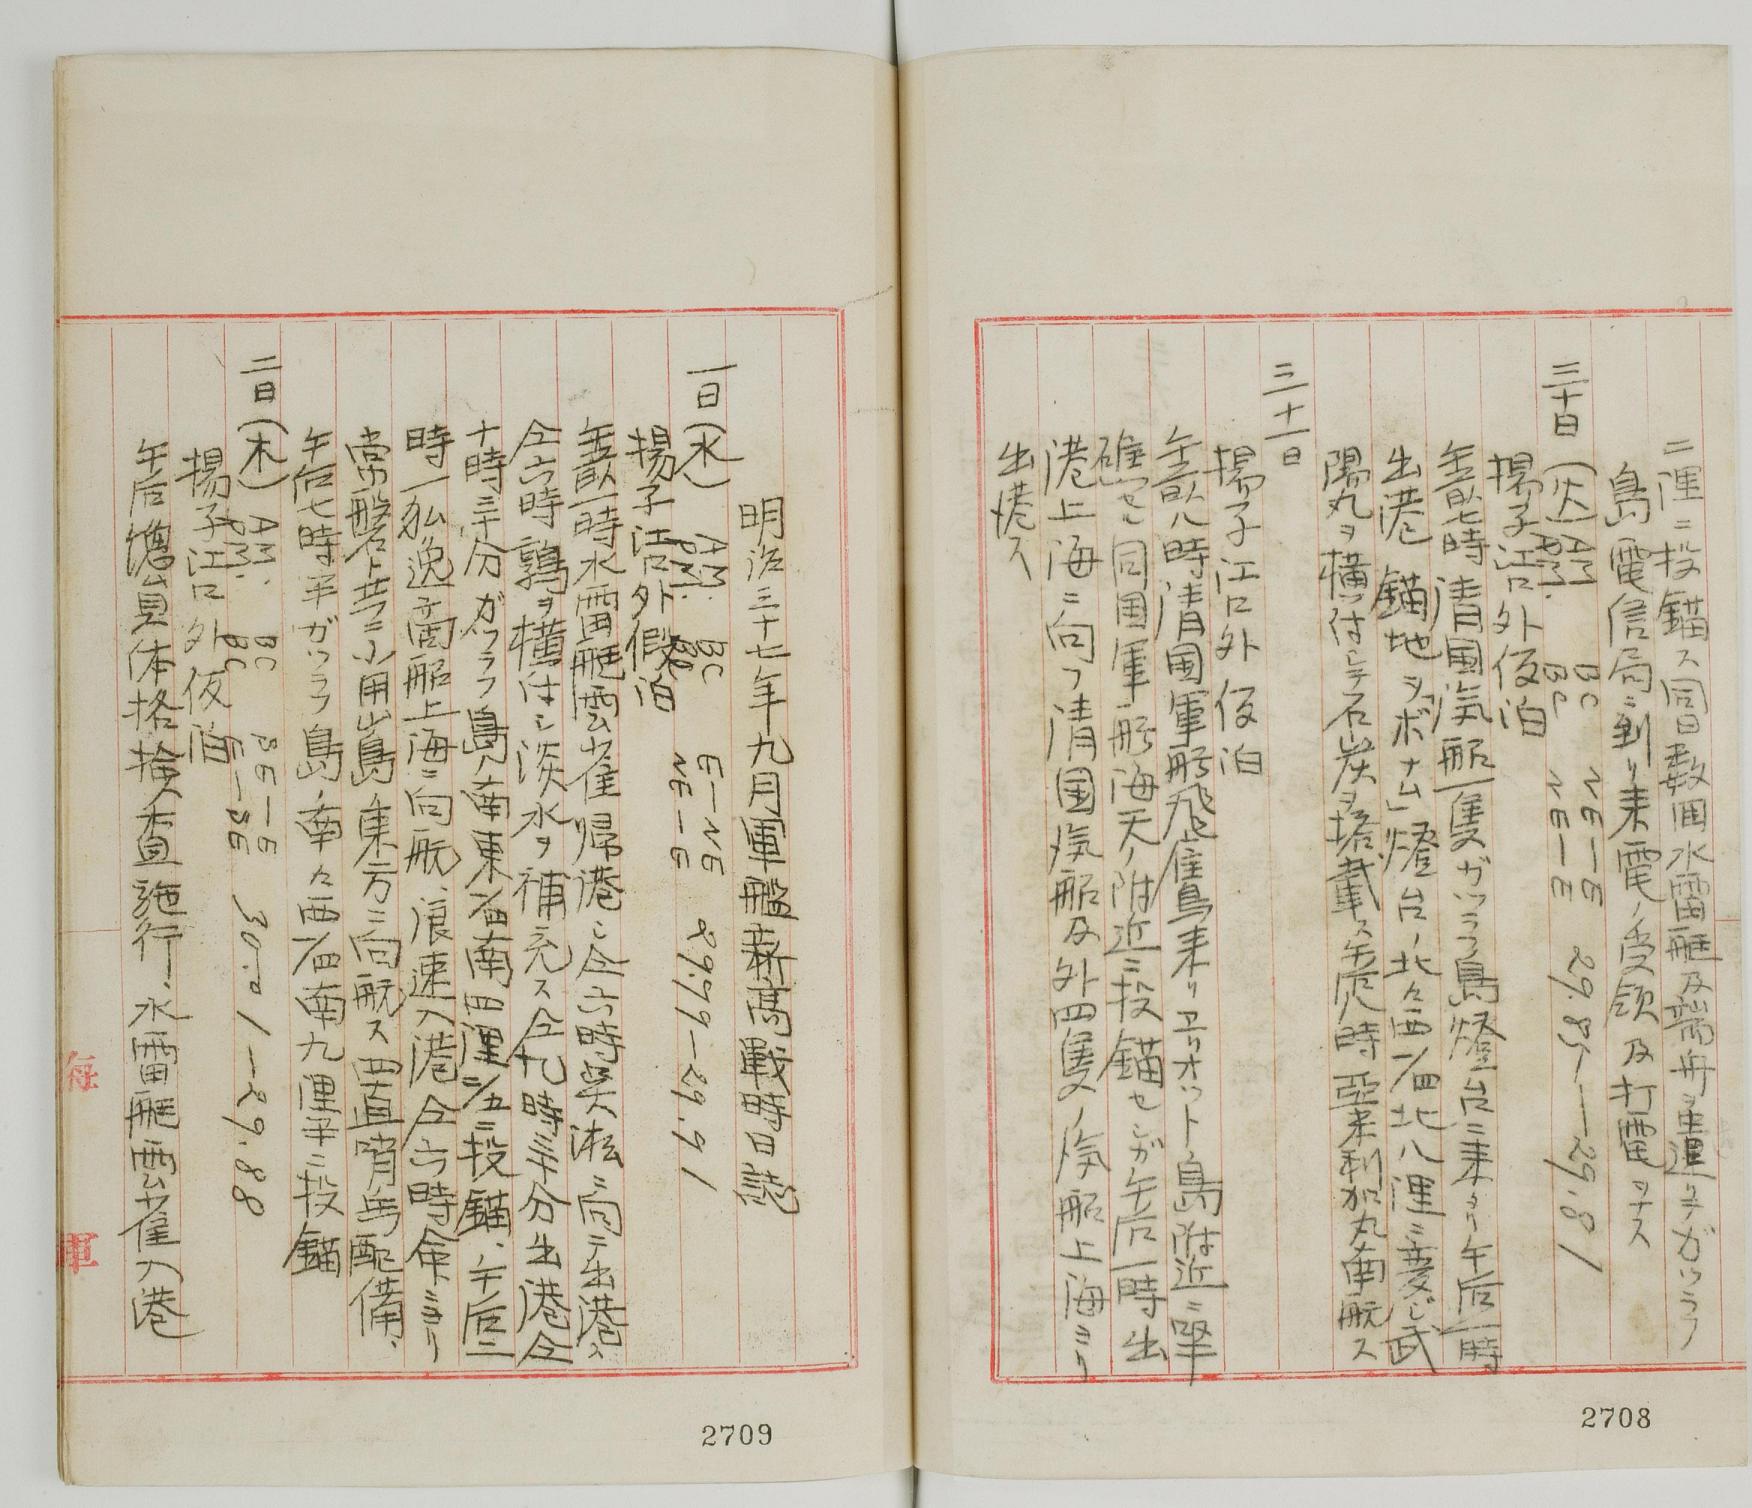 二浬ニ投錨ス同日数回水雷艇及端舟ヲ遣リテガツラフ
島電信局ニ到リ来電ノ受領及打電ヲナス
三十日(火) AM. PM. BC BC NE—E NE—E 29.85—29.81
揚子江口外仮泊
午前七時清国汽船一隻ガツラフ島燈台ニ来タリ午后一時
出港 錨地ヲ「ボナム」燈台ノ北々西1/4北八浬ニ変じ武
陽丸ヲ横付ケシテ石炭ヲ搭載ス午后八時亞米利加丸南航ス
三十一日
揚子江口外仮泊
午前八時清国軍艦飛鷹来リエリオット島附近ニ
礁セル同国軍艦海天ノ附近ニ投錨セシガ午后一時出
港上海ニ向フ清国汽船及外四隻ノ汽船上海ヨリ
出港ス
2708
明治三十七年九月軍艦新高戦時日誌
一日(水) AM. PM. BC BC E—NE NE—E 29.99—29.91
揚子江口外假泊
午前一時水雷艇雲雀帰港シ仝六時呉淞ニ向テ出港ス
仝六時鶉ヲ横付シ淡水ヲ補充ス仝九時三十分出港仝
十時三十分ガツラフ島ノ南東1/4南四浬2/5ニ投錨、午后二
時一独逸商船上海ニ向航、浪速入港仝六時命ニヨリ
常磐ト共ニ小用山島東方ニ向航ス四直哨兵配備、
午后七時半ガツラフ島ノ南々西1/4南九浬半ニ投錨
二日(木) AM. PM. BC BC SE—E E—SE 30.01—29.88
揚子江口外仮泊
午后傭員体格検査施行、水雷艇雲雀入港
海軍
2709